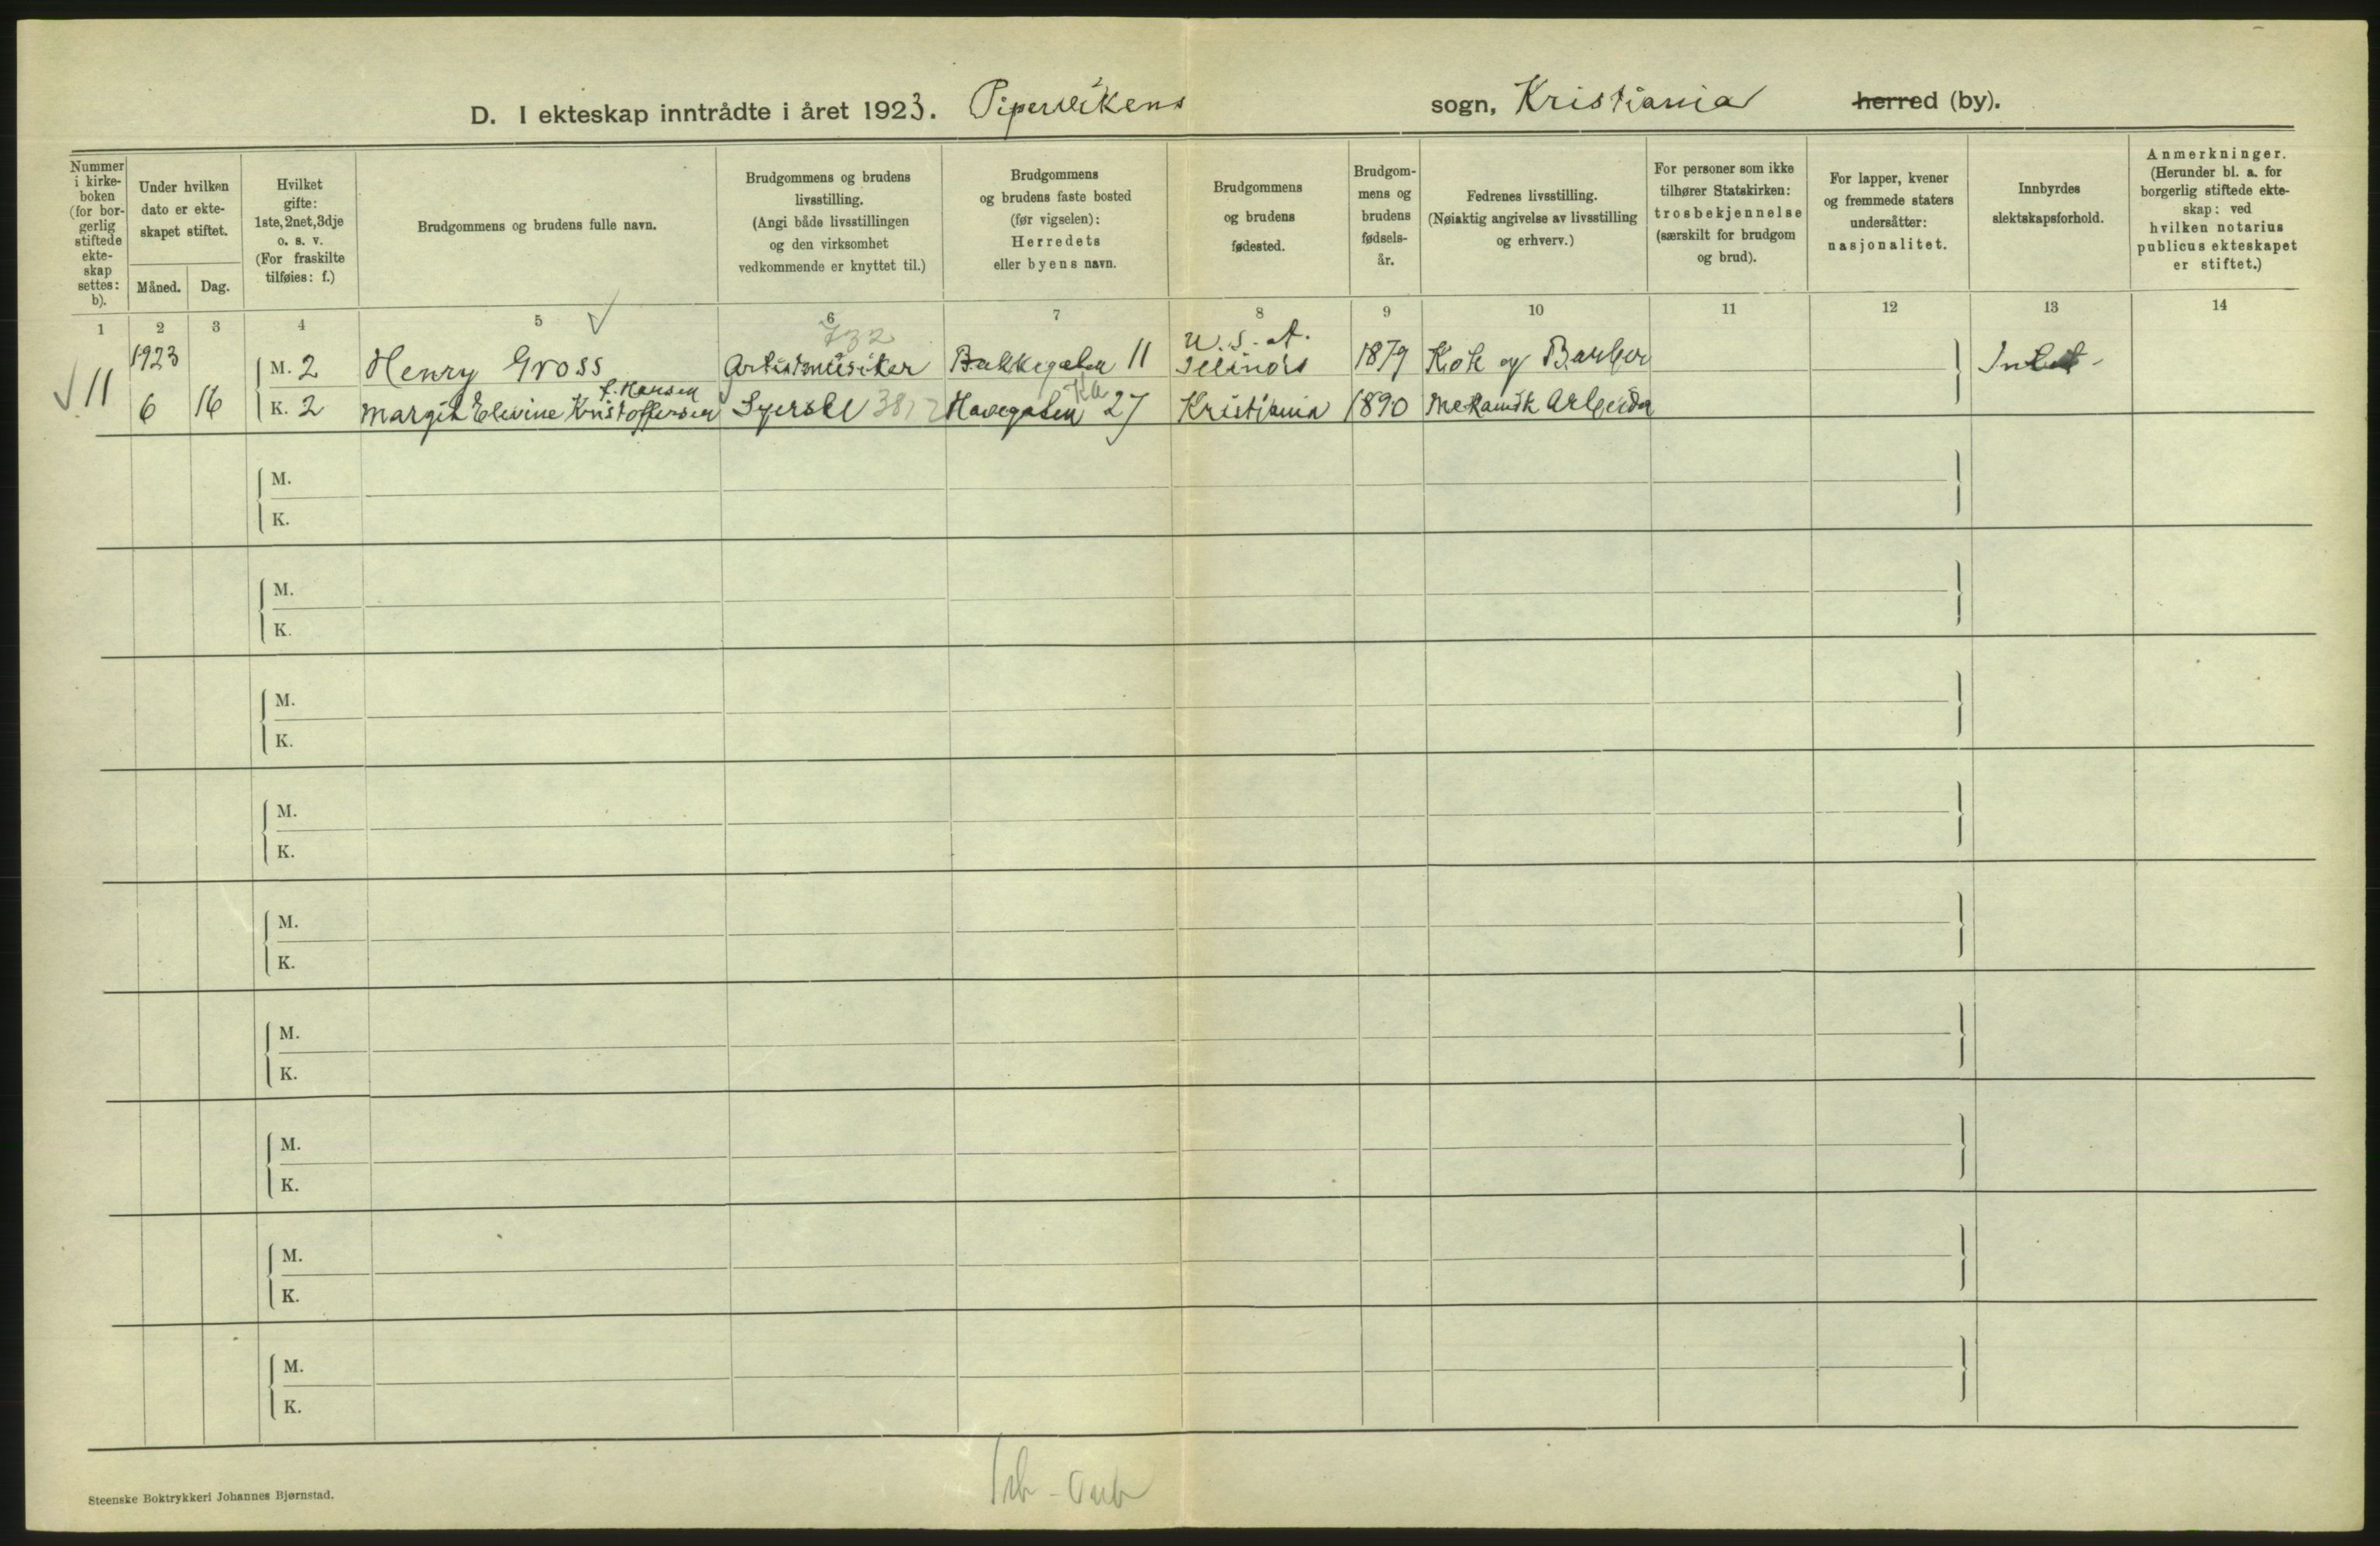 D. I ekteskap inntrådte i året 1923. Pipervikens sogn, Kristiania herred (by).
Nummer i kirke-boken (for bor-gerlig stiftede ekte-skap settes: b).
Under hvilken dato er ekte-skapet stiftet.
Måned. Dag.
Hvilket gifte: 1ste, 2net, 3dje o. s. v. (For fraskilte tilføies: f.)
Brudgommens og brudens fulle navn.
Brudgommens og brudens livsstilling. (Angi både livsstillingen og den virksomhet vedkommende er knyttet til.)
Brudgommens og brudens faste bosted (før vigselen): Herredets eller byens navn.
Brudgommens og brudens fødested.
Brudgom-mens og brudens fødsels-år.
Fedrenes livsstilling. (Nøiaktig angivelse av livsstilling og erhverv.)
For personer som ikke tilhører Statskirken: trosbekjennelse (særskilt for brudgom og brud).
For lapper, kvener og fremmede staters undersåtter: nasjonalitet.
Innbyrdes slektskapsforhold.
Anmerkninger. (Herunder bl. a. for borgerlig stiftede ekte-skap: ved hvilken notarius publicus ekteskapet er stiftet.)
1 2 3 4 5 6 7 8 9 10 11 12 13 14
732
1923 M. 2 Henry Gross Artistmusiker Bakkegaten 11 U.S.A. Illinois 1879 Kok og Barber Intet
f. Hansen
11 6 16 K. 2 Margit Elevine Kristoffersen Syerske Havegaten 27 Kristiania 1890 Mekanisk Arbeider
M.
K.
M.
K.
M.
K.
M.
K.
M.
K.
M.
K.
M.
K.
M.
K.
M.
K.
Steenske Boktrykkeri Johannes Bjørnstad.